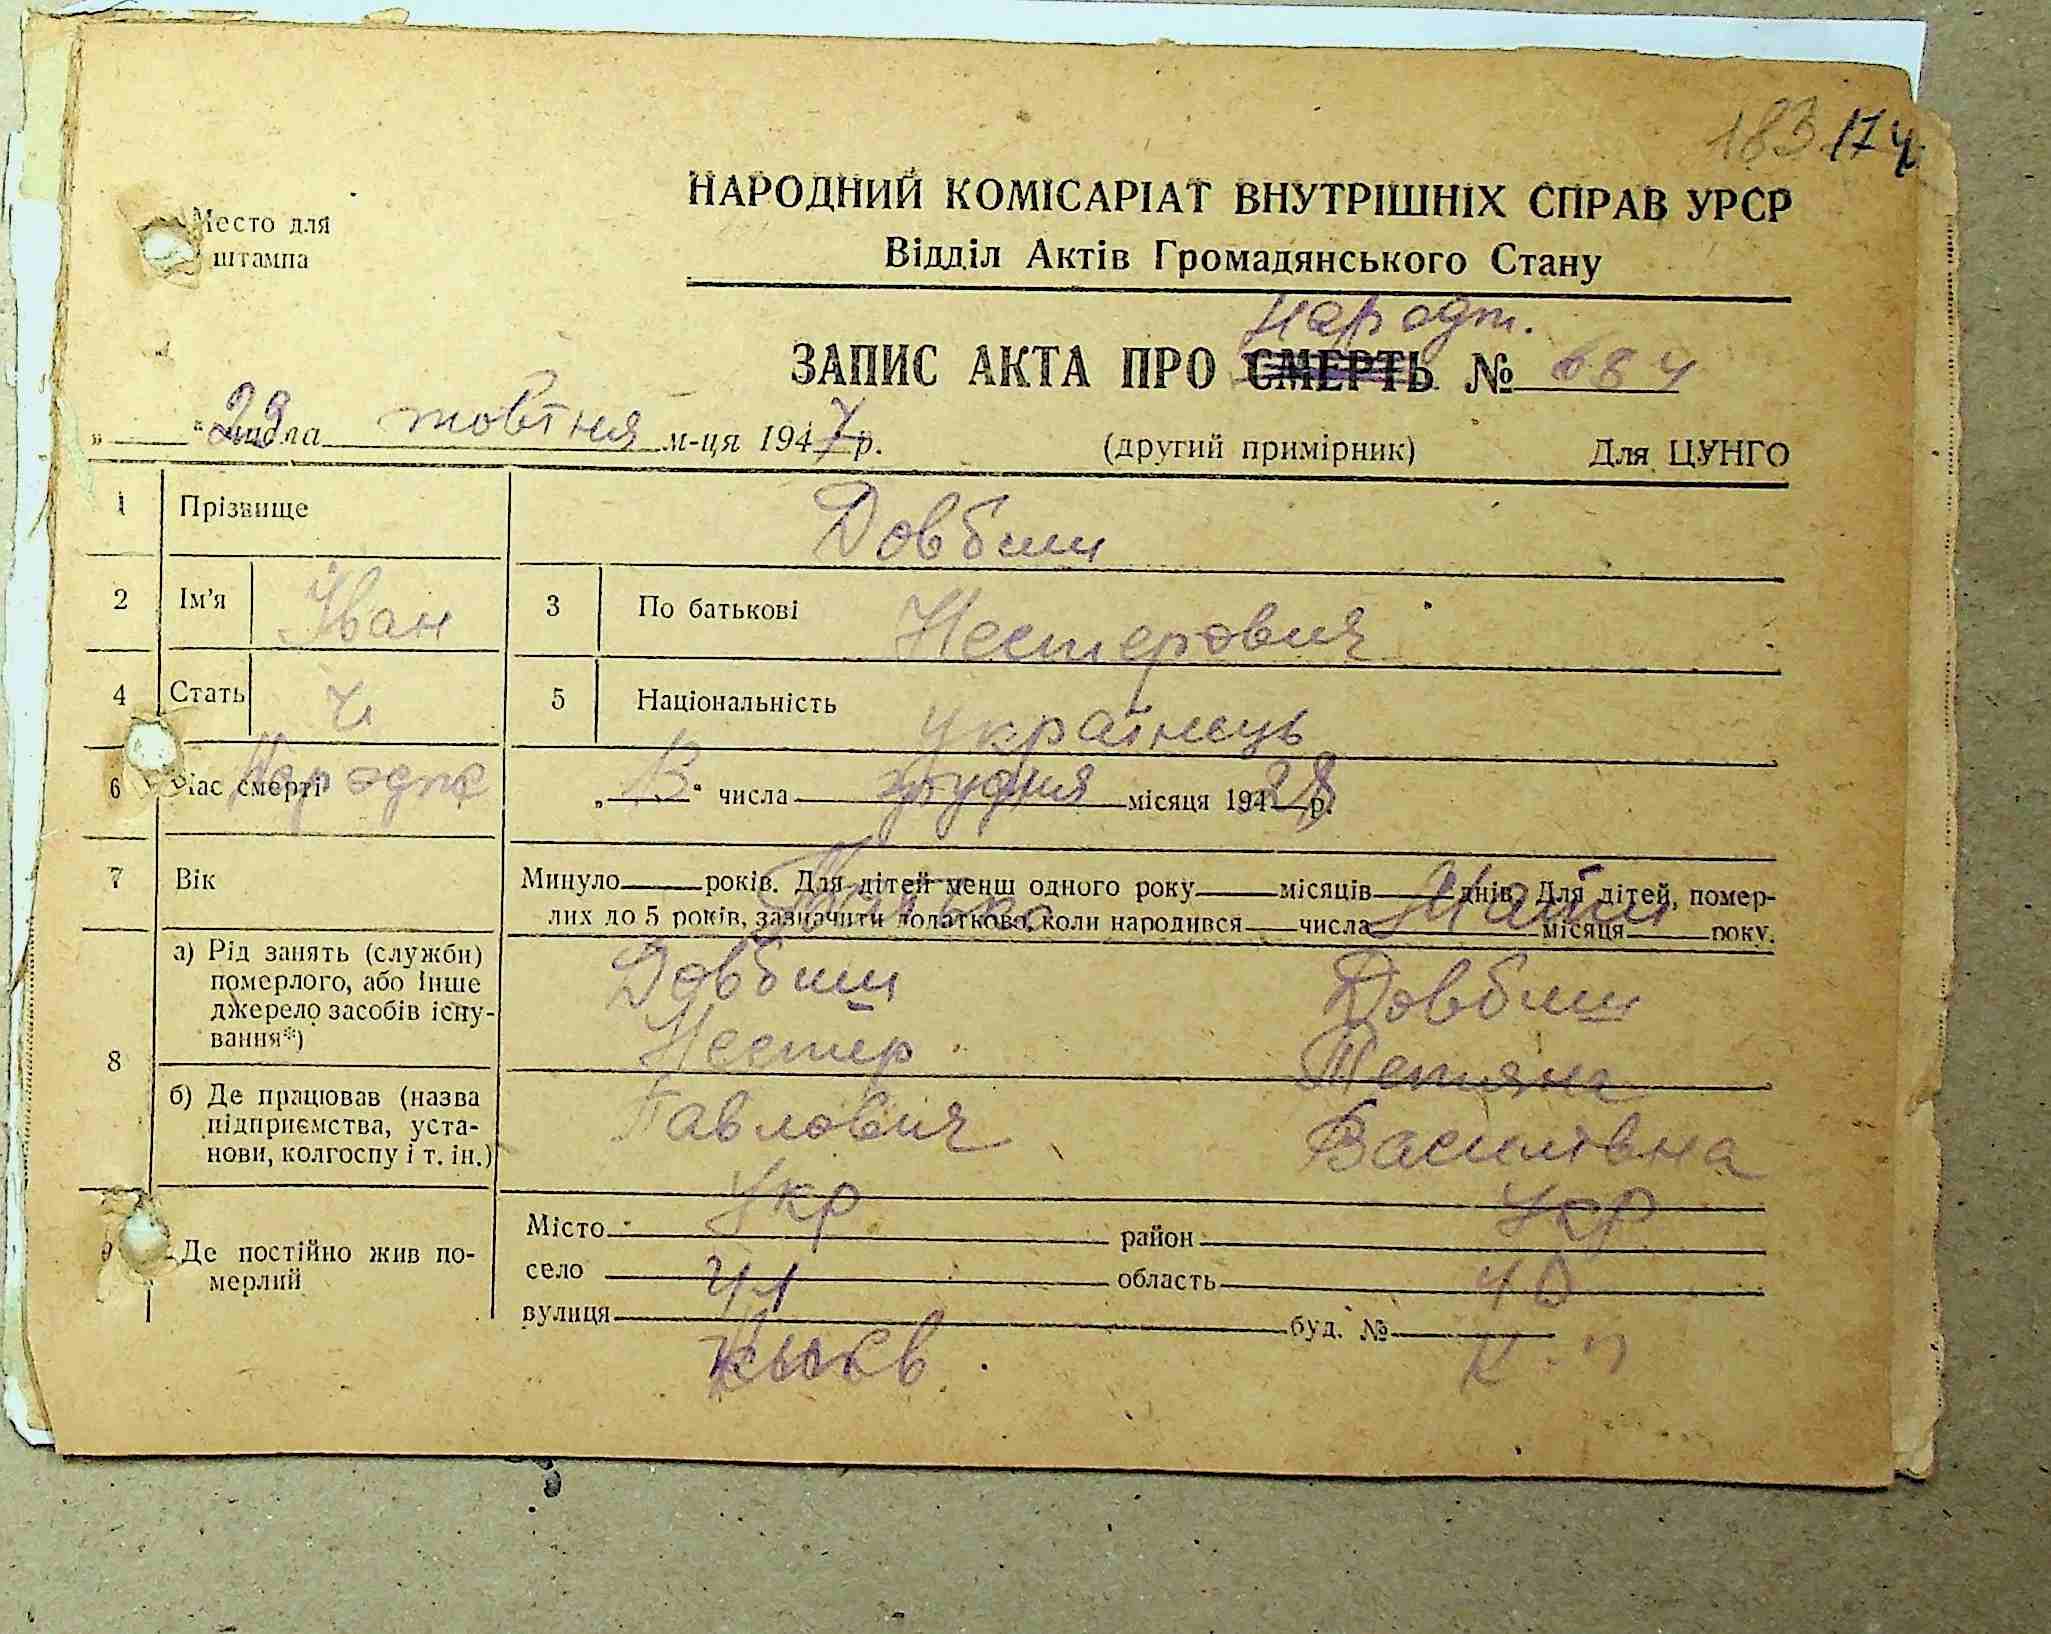 183 174
Место для
штампа
НАРОДНИЙ КОМІСАРІАТ ВНУТРІШНІХ СПРАВ УРСР
Відділ Актів Громадянського Стану
Народж.
ЗАПИС АКТА ПРО СМЕРТЬ № 684
„ " 29 числа жовтня м-ця 1947 р. (другий примірник) Для ЦУНГО
1 Прізвище Довбиш
2 Ім'я Іван 3 По батькові Нестерович
4 Стать ч 5 Національність українець
6 Час смерті Народж „13" числа грудня місяця 1928 р.
7 Вік Минуло року років. Для дітей менш одного року місяців днів. Для дітей, помер-
лих до 5 років, зазначити додатково, коли народився числа місяця року.
Батько Мати
8 а) Рід занять (служби)
померлого, або інше
джерело засобів існу-
вання*)
Довбиш Довбиш
Нестер Тетяна
б) Де працював (назва
підприємства, уста-
нови, колгоспу і т. ін.)
Павлович Василівна
Укр Укр
9 Де постійно жив по-
мерлий
Місто район
село 41 область 40
вулиця буд. №